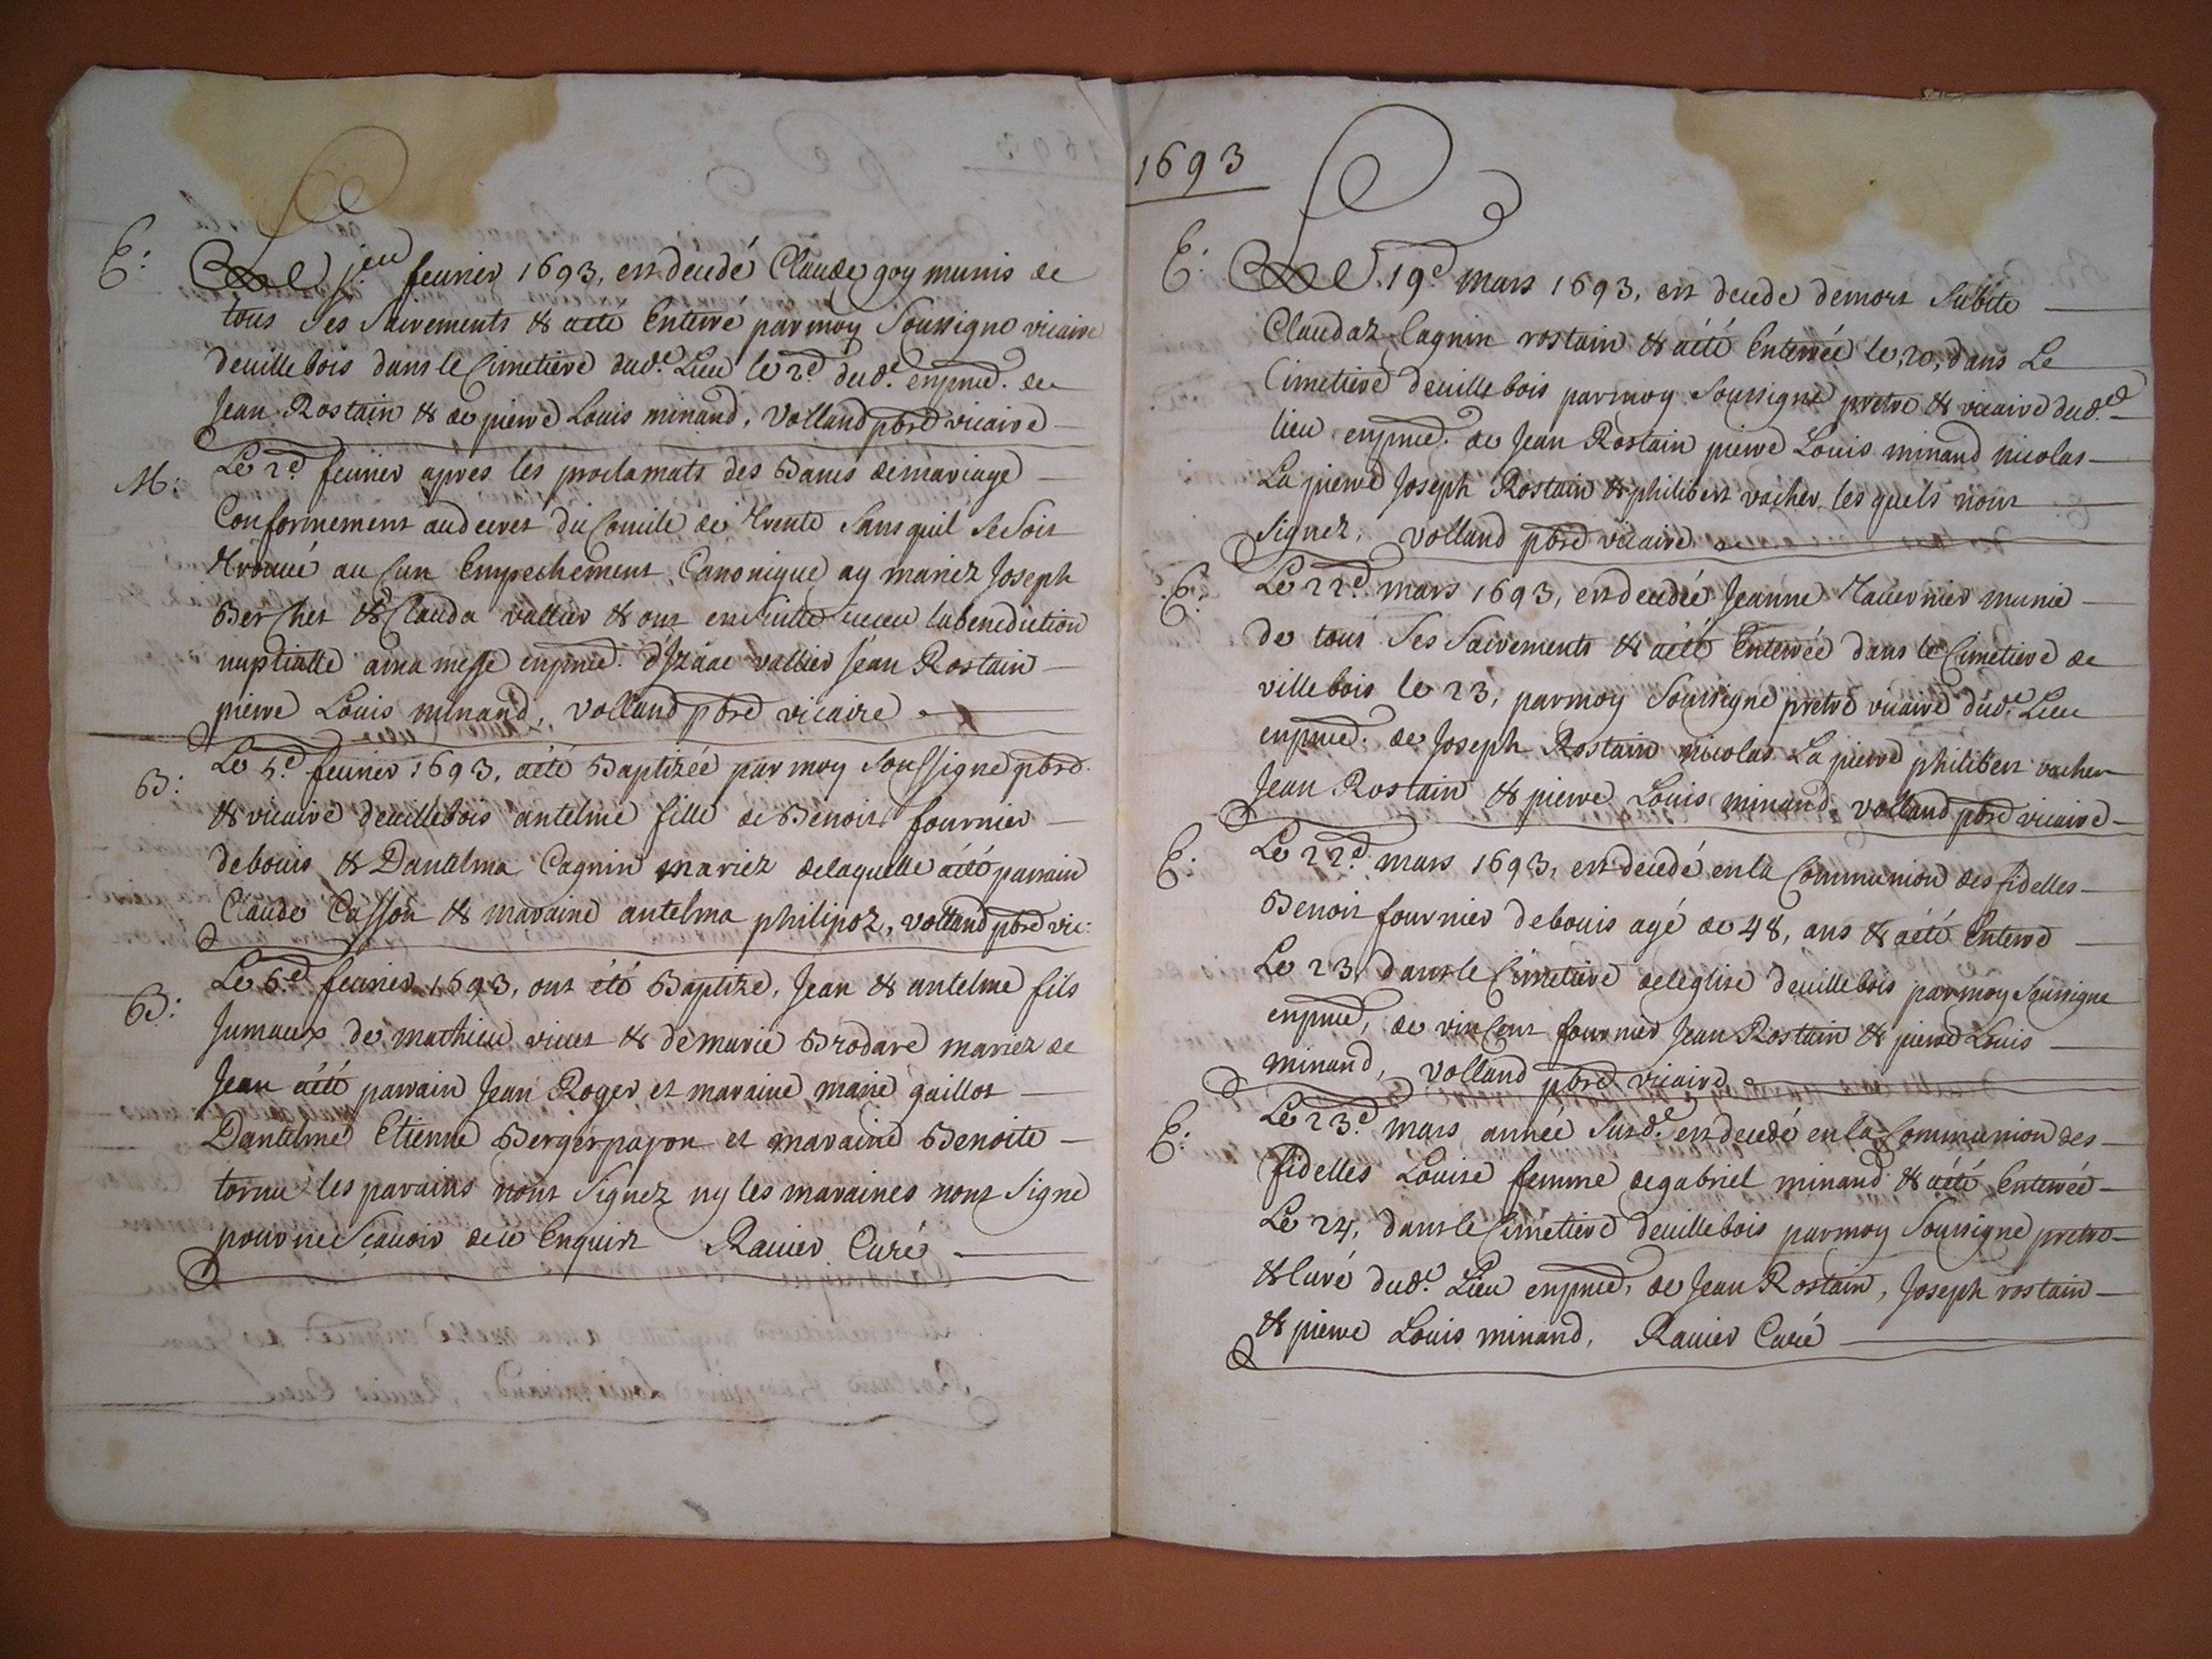 E: Le j.er feurier 1693, est decedé Claude goy munis de
tous ses Sacrements & aété Enterré parmoy Soussigne vicaire
deuillebois dans le Cimetiere dud.t Lieu le 2.d dud.t enpnce. de
Jean Rostain & de pierre Louis minand, Volland pbre vicaire
M: Le 2.d feurier apres les proclamats des Bans demariage
Conformement audecret du Concile de Trente Sans quil se soit
trouué au Cun Empechement Canonique ay mariez Joseph
Berchet & Clauda vallier & ont ensuitte receu labenediction
nuptialle ama messe enpnce. d'Izaac vallier Jean Rostain
pierre Louis minand, volland pbre vicaire
B: Le 5.d feurier 1693, aété Baptizée par moy Soussigne pbre
& vicaire deuillebois antelme fille de Benoit fournier
debouis & Dantelma Cagnin mariez delaquelle aété parrain
Claude Casson & maraine antelma philipoz, volland pbre vic:
B: Le 6.d feurier 1693, ont été Baptize, Jean & antelme fils
Jumeaux de mathieu viuet & demarie Brodare mariez de
Jean aété parrain Jean Roger et maraine marie gaillot
Dantelme Etienne Berger payon et maraine Benoite
tornu les parains nont Signez ny les maraines nont Signe
pour ne Sçauoir dece Enquis Rauier Curé
1693
E: Le 19.d mars 1693, est decede demort Subite
Claudaz Cagnin rostain & aété Enterrée le 20, dans Le
Cimetiere deuillebois parmoy Soussigne pretre & vicaire dud.t
lieu enpnce. de Jean Rostain pierre Louis minand nicolas
La pierre Joseph Rostain & philibert vacher les quels nont
Signez, volland pbre vicaire
E: Le 22.d mars 1693, est decedée Jeanne Tauernier munie
de tous Ses Sacrements & aété Enterrée dans le Cimetiere de
villebois le 23, parmoy Soussigne pretre vicaire dud.t Lieu
enpnce. de Joseph Rostain nicolas La pierre philibert vacher
Jean Rostain & pierre Louis minand, volland pbre vicaire
E: Le 22.d mars 1693, est decedé enla Communion des fidelles
Benoit fournier debouis agé de 48, ans & aété Enterre
Le 23, dans le Cimetiere deleglise deuillebois parmoy Soussigne
enpnce, de vinCent fournier Jean Rostain & pierre Louis
minand, volland pbre vicaire
E: Le 23.d mars année Susd.t est decedé enla Communion des
fidelles Louise femme degabriel minand & aété Enterrée
Le 24, dans le Cimetiere deuillebois parmoy Soussigne pretre
& Curé dud.t Lieu enpnce, de Jean Rostain, Joseph rostain
& pierre Louis minand, Rauier Curé